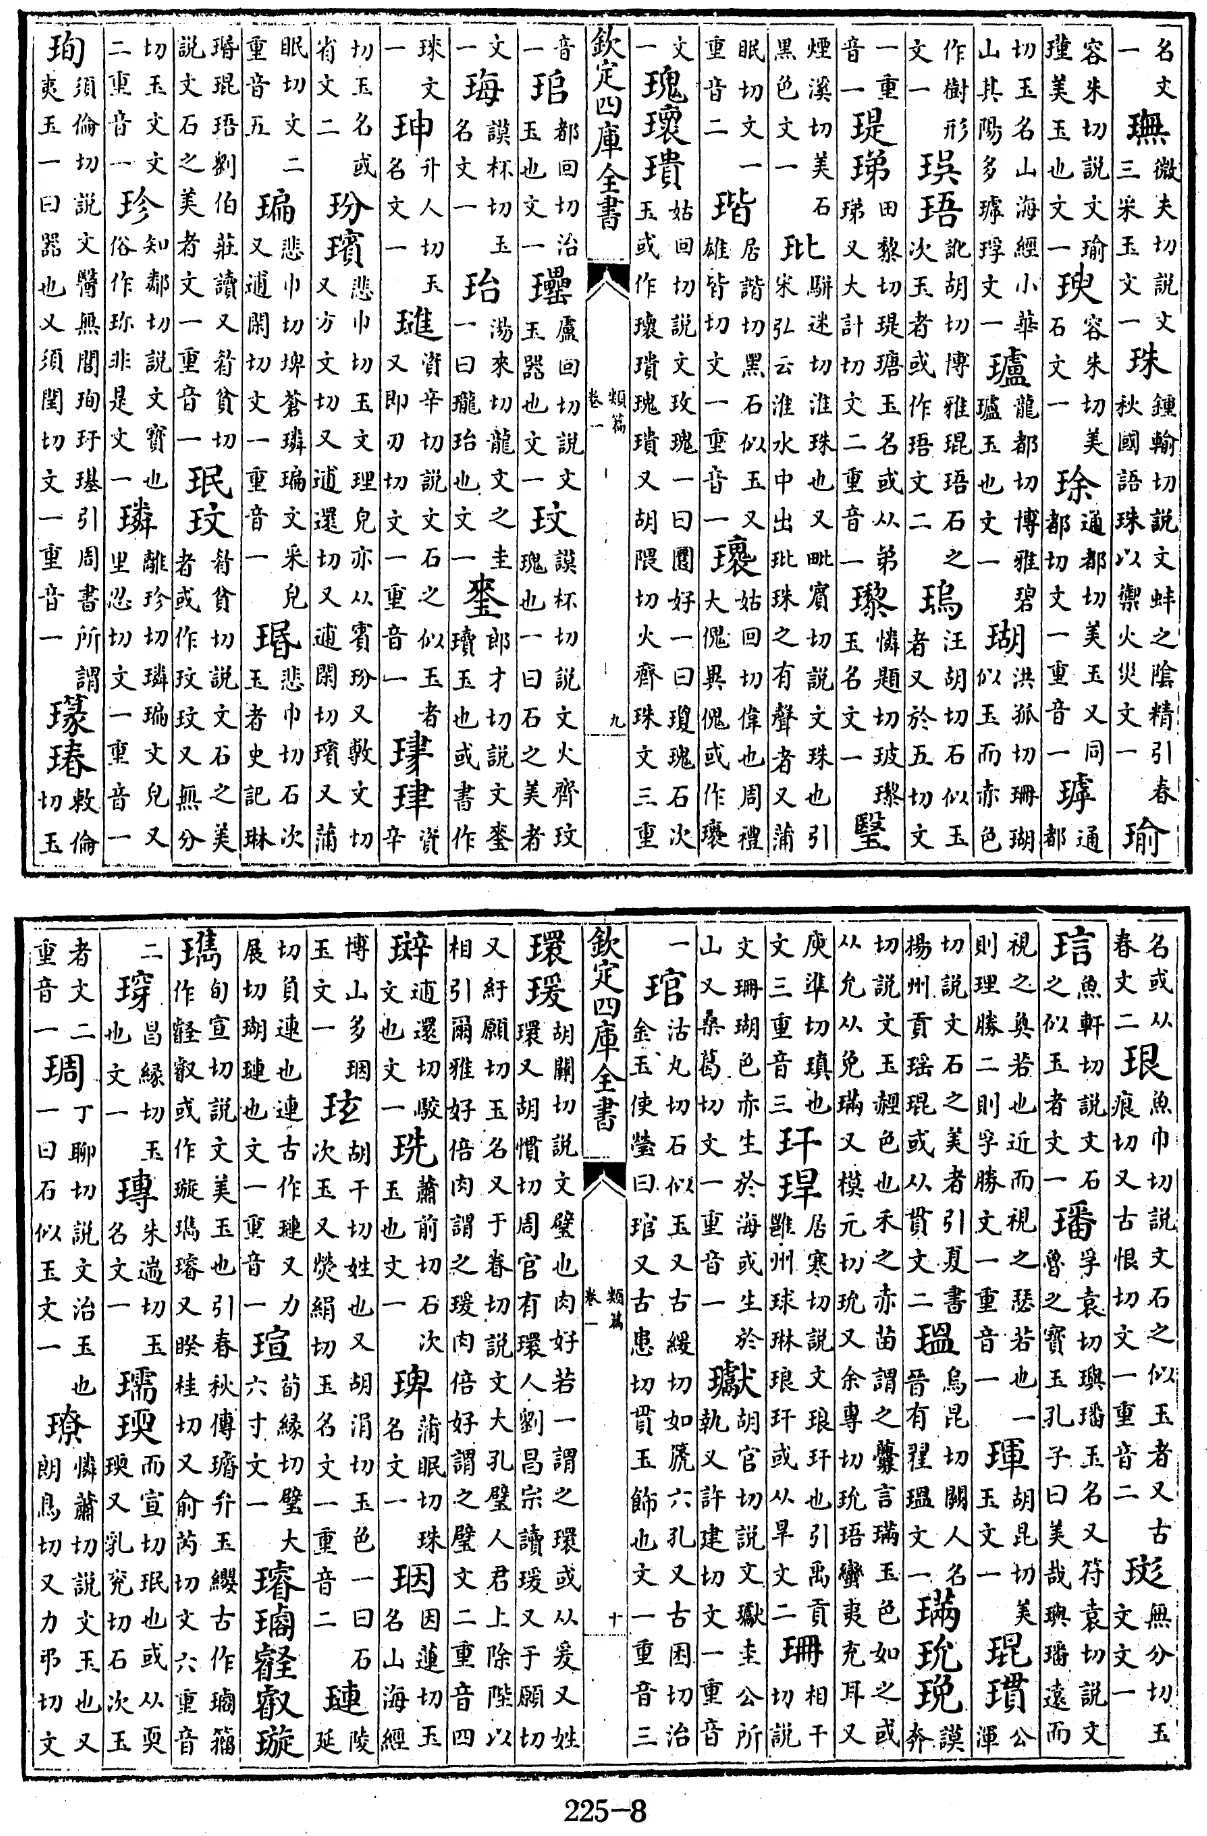 名文一璑微夫切說文三采玉文一珠鍾輸切說文蚌之陰精引春秋國語珠以禦火災文一瑜
容朱切說文瑜瑾美玉也文一容朱切美石文一通都切美玉又同都切文一重音一通都
切玉名山海經小華山其陽多㻬琈文一瓐龍都切博雅碧瓐玉也文一瑚洪孤切珊瑚似玉而赤色
作樹形文一珸訛胡切博雅琨珸石之次玉者或作珸文二瑦汪胡切石似玉者又於五切文
一重音一瑅田黎切瑅瑭玉名或从弟又大計切文二重音一瓈憐題切玻瓈玉名文一瑿
煙溪切美石黑色文一玭駢迷切淮珠也又毗賓切說文珠也引宋弘云淮水中出玭珠之有聲者又蒲
眠切文一重音二瑎居諧切黑石似玉又雄皆切文一重音一瓌姑回切偉也周禮大傀異傀或作褱
文一瑰瓌璝姑回切說文玫瑰一曰圜好一曰瓊瑰石次玉或作瓌璝瑰璝又胡隈切火齊珠文三重
欽定四庫全書 類篇 卷一 九
音一都回切治玉也文一瓃盧回切說文玉器也文一玫謨杯切說文火齊玫瑰也一曰石之美者
文一謨杯切玉名文一珆湯來切龍文之圭一曰瓏珆也文一郎才切說文瓄玉也或書作
珠文一珅升人切玉名文一璡資辛切說文石之似玉者又即刃切文一重音一資辛
切玉名或省文二玢璸悲巾切玉文理皃亦从賓玢又敷文切又方文切又逋還切又逋閑切璸又蒲
眠切文二重音五㻞悲巾切埤蒼璘㻞文采皃又逋閑切文一重音一珉悲巾切石次玉者史記琳
琨珸劉伯莊讀又眉貧切說文石之美者文一重音一珉玟眉貧切說文石之美者或作玟玟又無分
切玉文文二重音一珍知鄰切說文寶也俗作珎非是文一璘離珍切璘㻞文皃又里忍切文一重音一
珣須倫切說文醫無閭珣玗璂引周書所謂夷玉一曰器也又須閏切文一重音一敕倫切玉
名或从春文二珢魚巾切說文石之似玉者又古痕切又古恨切文一重音二玟無分切玉文文一
䇾魚軒切說文石之似玉者文一璠孚袁切璵璠玉名又符袁切說文魯之寶玉孔子曰美哉璵璠遠而
視之奐若也近而視之瑟若也一則理勝二則孚勝文一重音一琿胡昆切美玉文一琨瑻公渾
切說文石之美者引夏書揚州貢瑤琨或从貫文二瑥烏昆切闕人名晉有翟瑥文一璊玧謨奔
切說文玉赬色也禾之赤苗謂之虋言璊玉色如之或从允从免璊又模元切玧又余專切玧珸蠻夷充耳又
庾準切瑱也文三重音三玕琾居寒切說文琅玕也引禹貢雝州球琳琅玕或从旱文二珊相干切說
文珊瑚色赤生於海或生於山又桑葛切文一重音一瓛胡官切說文瓛圭公所執又許建切文一重音
一琯沽丸切石似玉又古緩切如篪六孔又古困切治金玉使瑩曰琯又古患切貫玉飾也文一重音三
欽定四庫全書 類篇 卷一 十
環瑗胡關切說文璧也肉好若一謂之環或从爰又姓環又胡慣切周官有環人劉昌宗讀瑗又于願切
又紆願切玉名又于眷切說文大孔璧人君上除陛以相引爾雅好倍肉謂之瑗肉倍好謂之璧文二重音四
逋還切駁文也文一珗蕭前切石次玉也文一琕蒲眠切珠名文一因蓮切玉名山海經
博山多玉文一玹胡千切姓也又胡涓切玉色一曰石次玉又熒絹切玉名文一重音二璉陵延
切負連也連古作璉又力展切瑚璉也文一重音一瑄荀緣切璧大六寸文一璿璇
㻽旬宣切說文美玉也引春秋傳璿弁玉纓古作或作璇璿又睽桂切又俞芮切文六重音
二昌緣切玉也文一瑼朱遄切玉名文一瓀瑌而宣切珉也或从耎瑌又乳兗切石次玉
者文二重音一琱丁聊切說文治玉也一曰石似玉文一璙憐蕭切說文玉也又朗鳥切又力弔切文
225-8